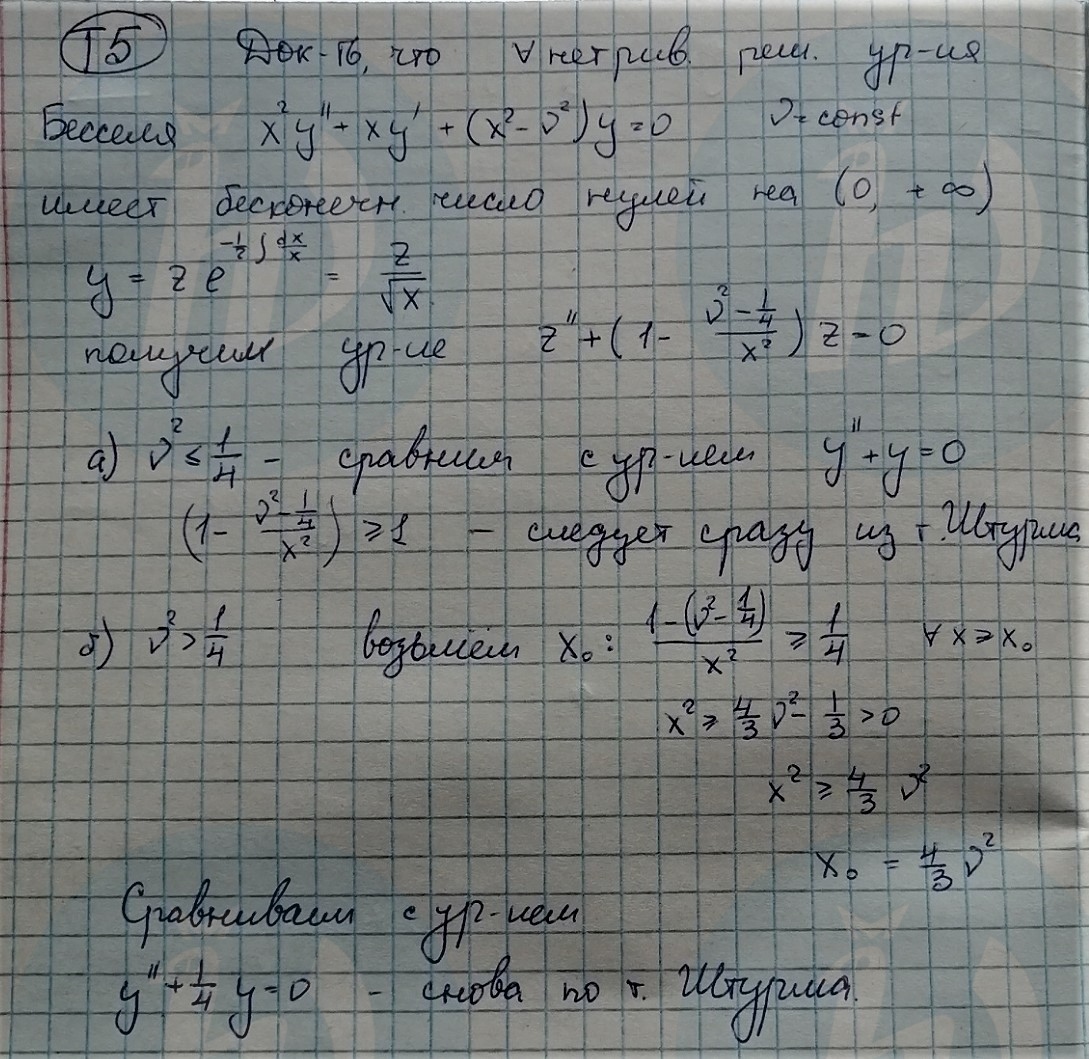 Т5 Док-ть, что ∀ нетрив. реш. ур-ия
Бесселя x²y'' + xy' + (x² - ν²)y = 0 ν = const
имеет бесконечн. число нулей на (0, +∞)
y = z e^{-1/2 ∫ dx/x} = z/√x
получим ур-ие z'' + (1 - (ν² - 1/4)/x²) z = 0
а) ν² ≤ 1/4 - сравним с ур-ием y'' + y = 0
(1 - (ν² - 1/4)/x²) ≥ 1 - следует сразу из т. Штурма
б) ν² > 1/4 возьмём x₀: (1 - (ν² - 1/4))/x² ≥ 1/4 ∀ x ≥ x₀
x² ≥ 4/3 ν² - 1/3 > 0
x² ≥ 4/3 ν²
x₀ = 4/3 ν²
Сравниваем с ур-ием
y'' + 1/4 y = 0 - снова по т. Штурма.